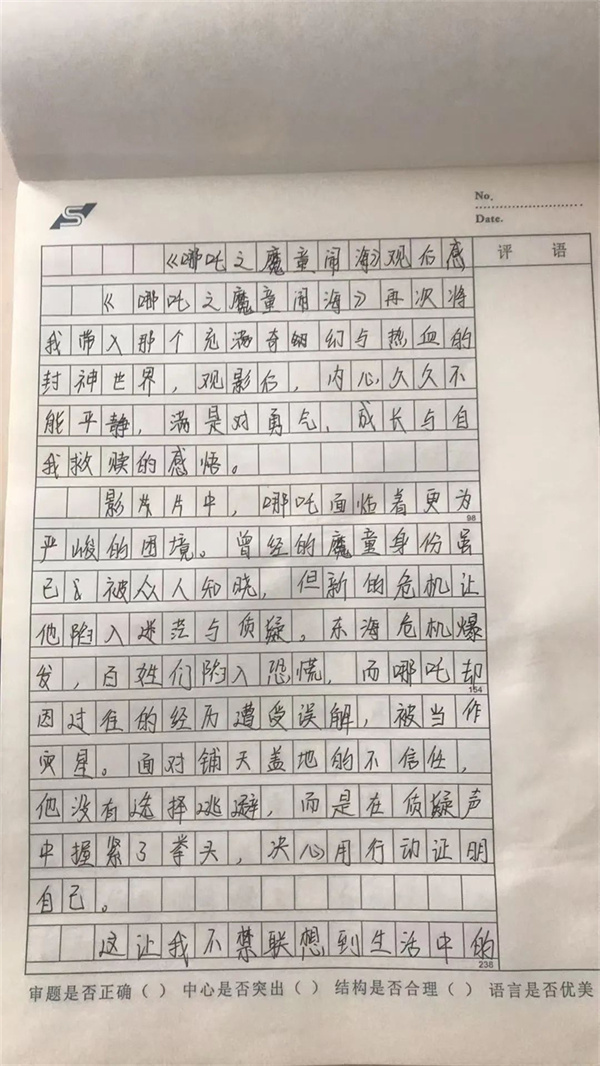 No.
Date.
评 语
《哪吒之魔童闹海》观后感
《哪吒之魔童闹海》再次将
我带入那个充满奇幻与热血的
封神世界，观影后，内心久久不
能平静，满是对勇气、成长与自
我救赎的感悟。
影片片中，哪吒面临着更为
98
严峻的困境。曾经的魔童身份虽
已被众人知晓，但新的危机让
他陷入迷茫与质疑。东海危机爆
发，百姓们陷入恐慌，而哪吒却
154
因过往的经历遭受误解，被当作
灾星。面对铺天盖地的不信任，
他没有选择逃避，而是在质疑声
中握紧了拳头，决心用行动证明
自己。
这让我不禁联想到生活中的
238
审题是否正确（ ） 中心是否突出（ ） 结构是否合理（ ） 语言是否优美